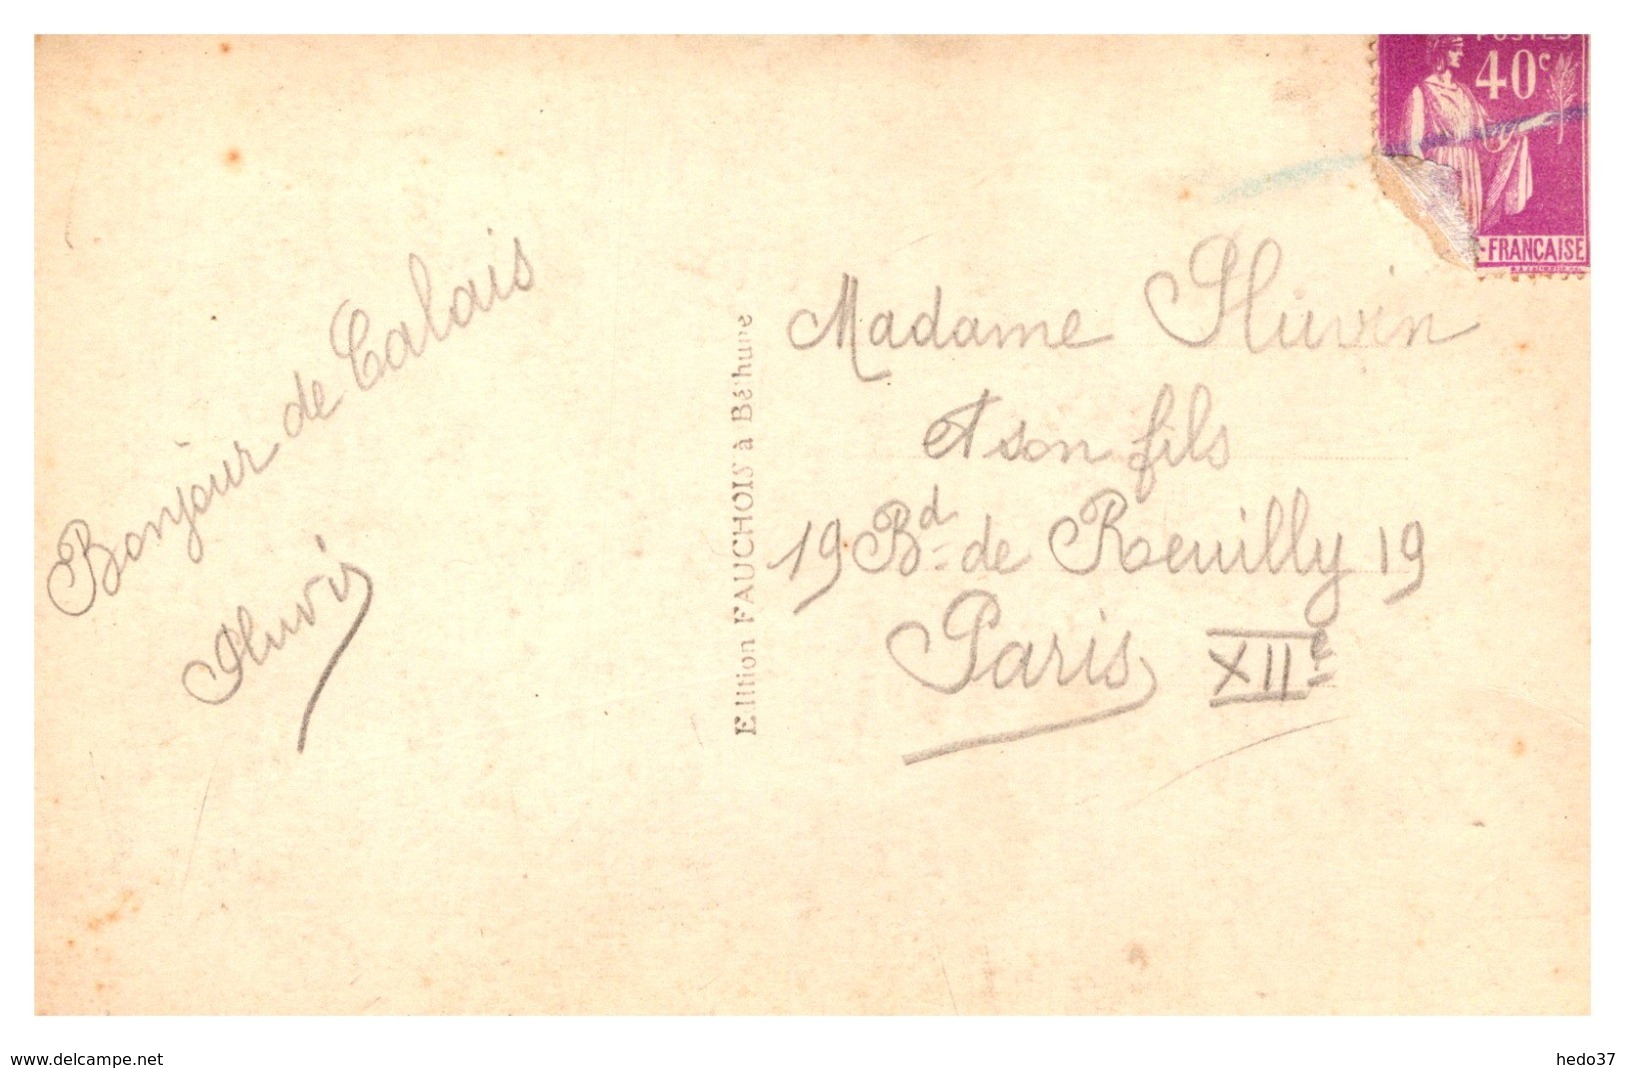 Bonjour de Calais
Pluvin
Edition FAUCHOIS à Béthune
POSTES
40c
FRANÇAISE
Madame Pluvin
et son fils
19 Bd de Reuilly 19
Paris XIIe
www.delcampe.net
hedo37